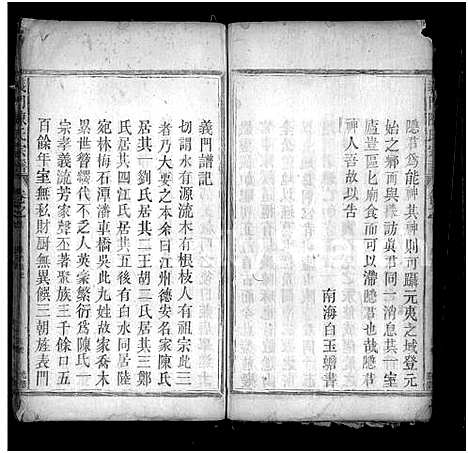 隱君為能神其神則可躡元夷之域登元
始之鄉而與接訪真君同一消息其一室
廬豈區區廟食而可以滯隱君也哉隱君
神人吾故以告
南海白玉蟾書
義門譜記
切謂水有源流木有根枝人有祖宗此三
者乃大要之本余曰江州德安名家陳氏
居其一劉氏居其二王胡二氏居其三鄭
氏居其四江氏居其五後有白水同居陸
宛林梅石潭潘車橋吳此九姓故家喬木
累世簪纓代不乏人英豪繁衍為陳氏一
宗孝義流芳家聲丕著聚族三千餘口五
百餘年室無私財厨無異饌三朝旌表門